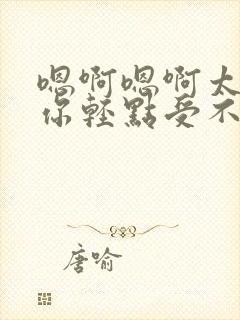 嗯啊嗯啊太
你輕點受不
唐喻